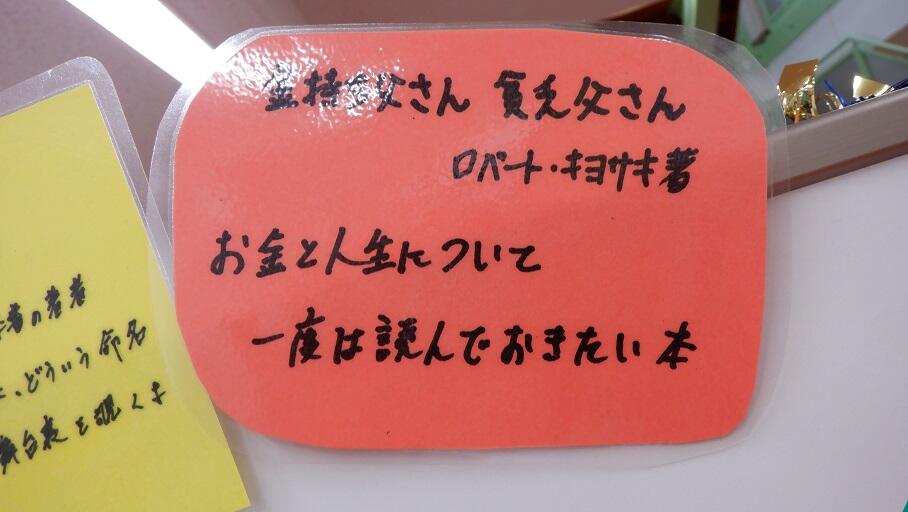 金持ち父さん 貧乏父さん
ロバート・キヨサキ著
お金と人生について
一度は読んでおきたい本
の著者
どういう命名